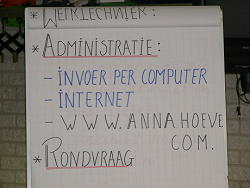 * WERKTECHNIEK:
* ADMINISTRATIE:
- iNVOER PER COMPUTER
- iNTERNET
- WWW.ANNAHOEVE
COM.
* RONDVRAAG